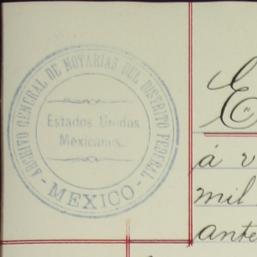 ARCHIVO GENERAL DE NOTARIAS DEL DISTRITO FEDERAL
Estados Unidos
Mexicanos.
- MEXICO -
á v
mil
ante